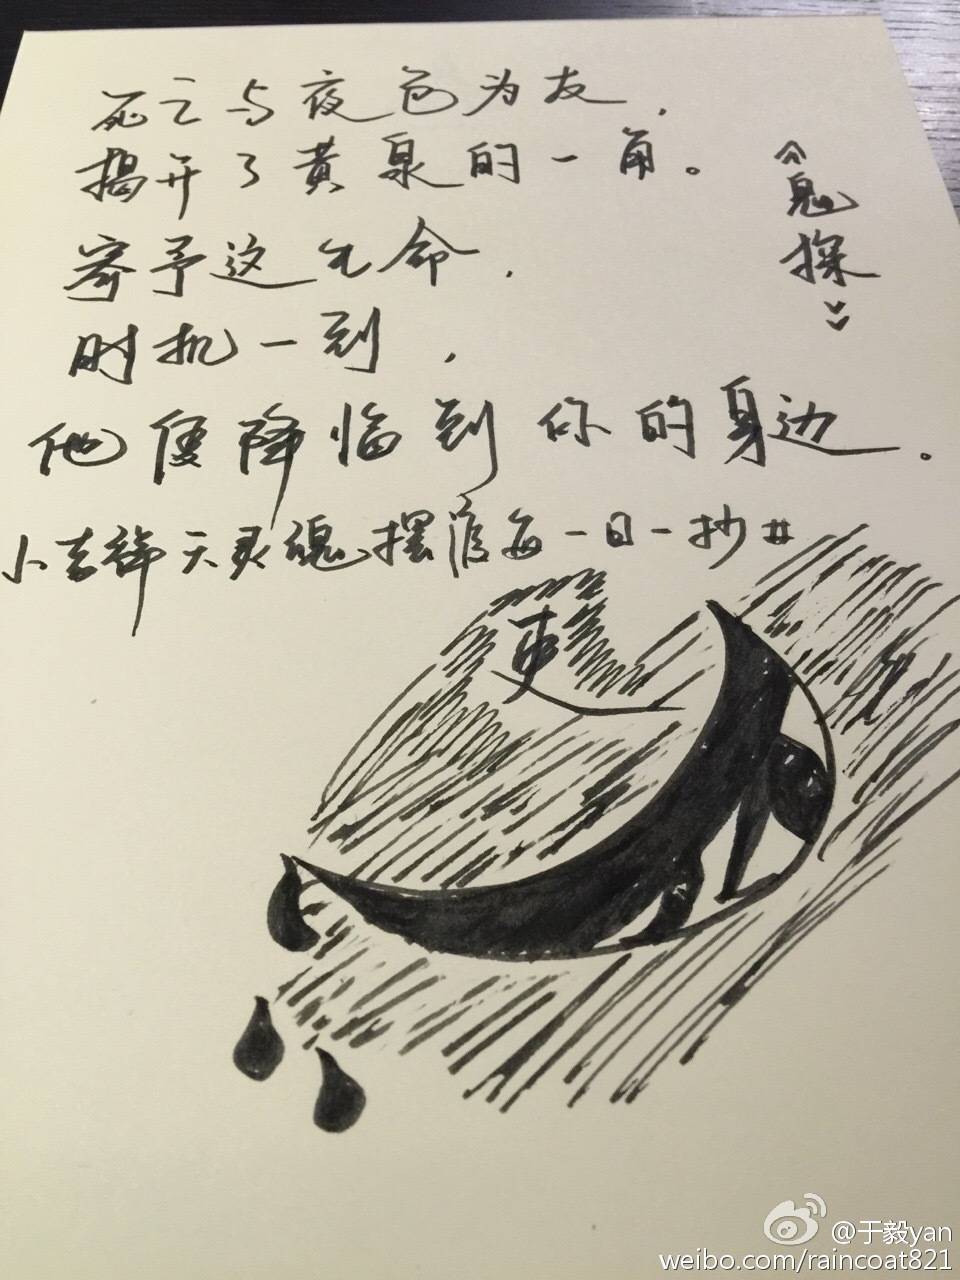 死亡与夜色为友，
揭开了黄泉的一角。
寄予这生命，
时机一到，
他便降临到你的身边。
《鬼探》
小吉祥天灵魂摆渡每一日一抄#
@于毅yan
weibo.com/raincoat821